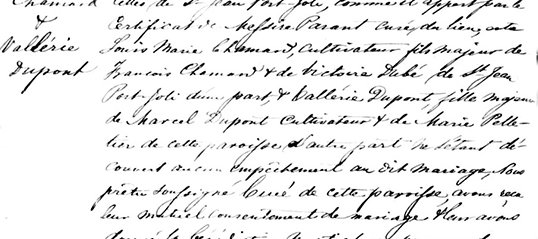 Chamard celles de St Jean Port-Joli, comme il appert par le
&
Certificat de Messire Parant curé du lieu, entre
Vallérie
Louis Marie Chamard, Cultivateur fils majeur de
Dupont
François Chamard & de Victoire Dubé de St Jean
Port-Joli d'une part, & Vallérie Dupont, fille majeure
de Marcel Dupont Cultivateur & de Marie Pelle-
tier de cette paroisse d'autre part ne s'étant dé-
couvert aucun empêchement au dit mariage, Nous
prêtre soussigné Curé de cette paroisse avons reçu
leur mutuel consentement de mariage & leur avons